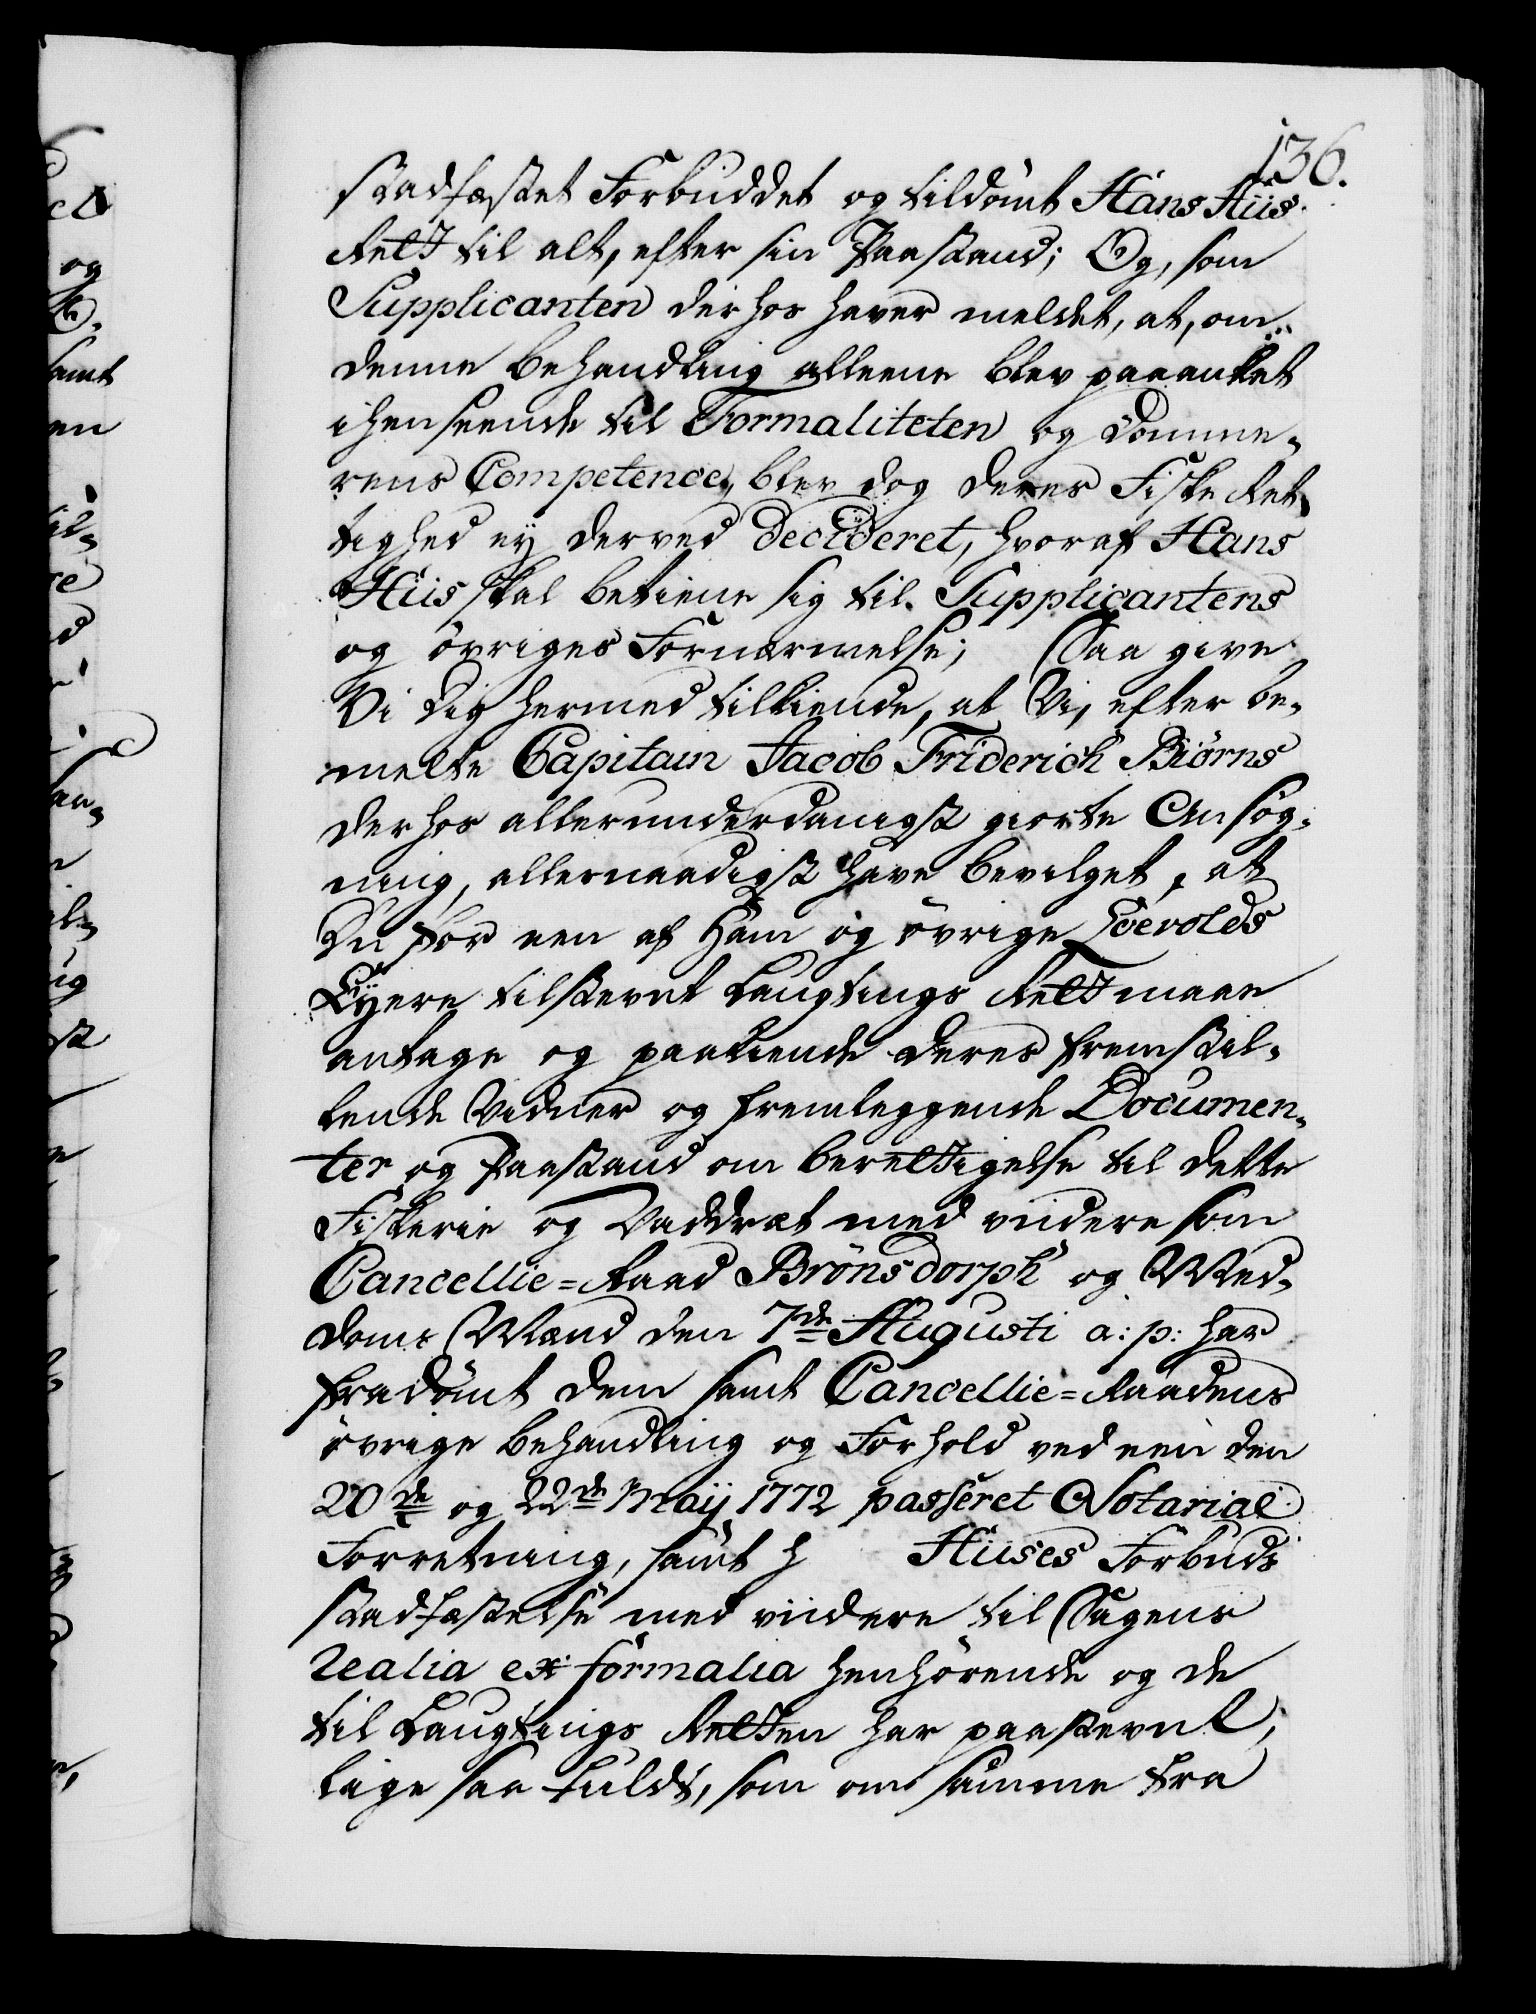 136.
stadfæstet Forbuddet og tildømt Hans Hiis
Rett til alt, efter sin Paastand; Og, som
Supplicanten derhos haver meldet, at, om
denne Behandling alleene blev paaanket
i henseende til Formaliteten og Domme-
rens Competence, blev dog deres Fiske Ret-
tighed ey derved decideret, hvoraf Hans
Hiis skal betiene sig til Supplicantens
og øvriges Fornærmelse; Saa give
Vi dig hermed tilkiende, at Vi, efter be-
melte Capitain Jacob Friderich Biørns
derhos allerunderdanigst giorte Ansøg-
ning, allernaadigst have bevilget, at
Du for een af Ham og øvrige Loevolds
Eyere tilstevnt Laugtings Rett maae
antage og paakiende deres fremstil-
lende Vidner og fremleggende Documen-
ter og Paastand om berettigelse til dette
Fiskerie og Vaddræt med videre som
Cancellie-Raad Brönsdorph og Med-
doms Mænd den 7de Augusti a: p: har
fradømt dem samt Cancellie-Raadens
øvrige Behandling og Forhold ved een den
20de og 22de Maij 1772 passeret Notarial
Forretning, samt H Hiises Forbuds
stadfæstelse med videre til Sagens
realia ex formalia henhørende og de
til Laugtings Retten har paastevnt,
lige saa fuldt, som om samme fra